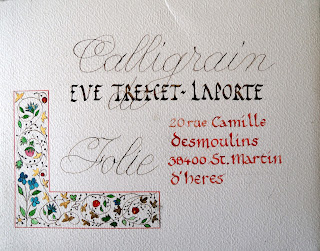 Calligrain
EVE TREHET-LAPORTE
de
Folie
20 rue Camille
Desmoulins
38400 St. Martin
d'heres